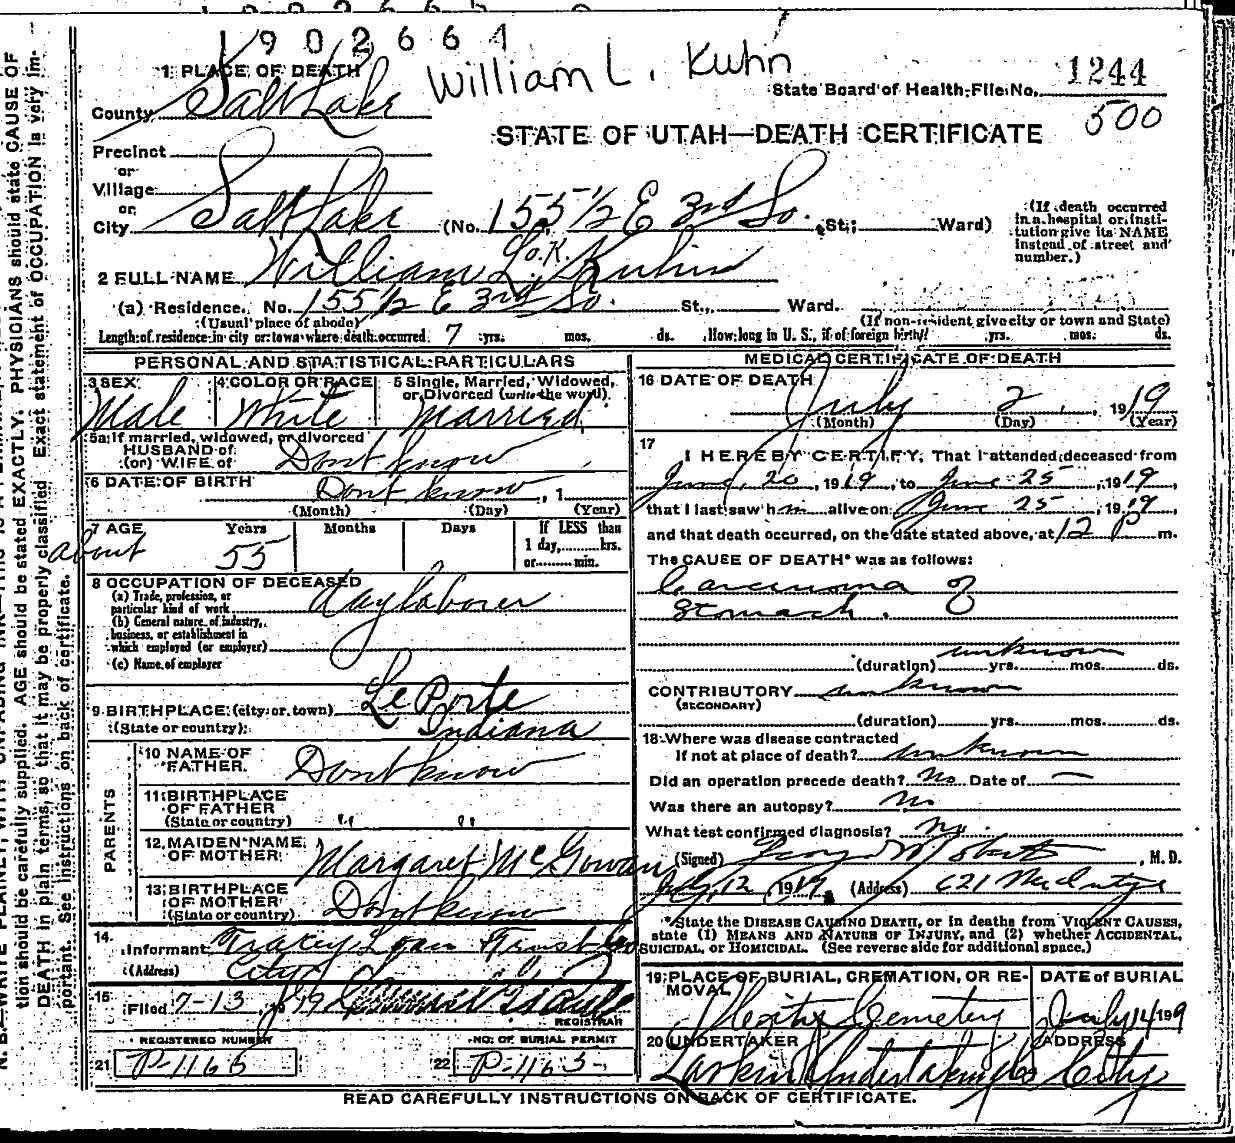 1902661
William L. Kuhn
1244
State Board of Health-File No.
500
STATE OF UTAH—DEATH CERTIFICATE
1 PLACE OF DEATH
County Salt Lake
Precinct
or
Village
or
City Salt Lake (No. 155 1/2 E 3rd So. St.; Ward)
(If death occurred in a hospital or institution give its NAME instead of street and number.)
2 FULL NAME William L. Kuhn
O.K.
(a) Residence. No. 155 1/2 E 3rd So. St., Ward.
(Usual place of abode) (If non-resident give city or town and State)
Length of residence in city or town where death occurred 7 yrs. mos. ds. How long in U. S., if of foreign birth? yrs. mos. ds.
PERSONAL AND STATISTICAL PARTICULARS
3 SEX Male
4 COLOR OR RACE White
5 Single, Married, Widowed, or Divorced (write the word). Married
5a If married, widowed, or divorced
HUSBAND of
(or) WIFE of Dont know
6 DATE OF BIRTH Dont know, 1
(Month) (Day) (Year)
7 AGE Years Months Days If LESS than
about 55 1 day, hrs.
or min.
8 OCCUPATION OF DECEASED
(a) Trade, profession, or particular kind of work day laborer
(b) General nature of industry, business, or establishment in which employed (or employer)
(c) Name of employer
9 BIRTHPLACE (city or town) Le Porte
(State or country) Indiana
PARENTS
10 NAME OF FATHER Dont know
11 BIRTHPLACE OF FATHER
(State or country) " "
12 MAIDEN NAME OF MOTHER Margaret McGowan
13 BIRTHPLACE OF MOTHER
(State or country) Dont know
14 Informant Tracey Loan & Trust Co
(Address) City
15 Filed 7-13, 1919
REGISTRAR
REGISTERED NUMBER
21 P-1165
NO. OF BURIAL PERMIT
22 P-1165
MEDICAL CERTIFICATE OF DEATH
16 DATE OF DEATH
July 2, 1919
(Month) (Day) (Year)
17
I HEREBY CERTIFY, That I attended deceased from
June 20, 1919, to June 25, 1919,
that I last saw h m alive on June 25, 1919,
and that death occurred, on the date stated above, at 12 P m.
The CAUSE OF DEATH* was as follows:
Carcinoma of
Stomach.
(duration) unknown yrs. mos. ds.
CONTRIBUTORY unknown
(SECONDARY)
(duration) yrs. mos. ds.
18 Where was disease contracted
If not at place of death? unknown
Did an operation precede death? No Date of —
Was there an autopsy? No
What test confirmed diagnosis? No.
(Signed) , M. D.
July 12, 1919. (Address) 621 McIntyre
*State the DISEASE CAUSING DEATH, or in deaths from VIOLENT CAUSES, state (1) MEANS AND NATURE OF INJURY, and (2) whether ACCIDENTAL, SUICIDAL, or HOMICIDAL. (See reverse side for additional space.)
19 PLACE OF BURIAL, CREMATION, OR REMOVAL City Cemetery
DATE of BURIAL July 14 1919
20 UNDERTAKER Larkin Undertaking Co
ADDRESS City
READ CAREFULLY INSTRUCTIONS ON BACK OF CERTIFICATE.
tion should be carefully supplied. AGE should be stated EXACTLY. PHYSICIANS should state CAUSE OF
DEATH in plain terms, so that it may be properly classified. Exact statement of OCCUPATION is very im-
portant. See instructions on back of certificate.